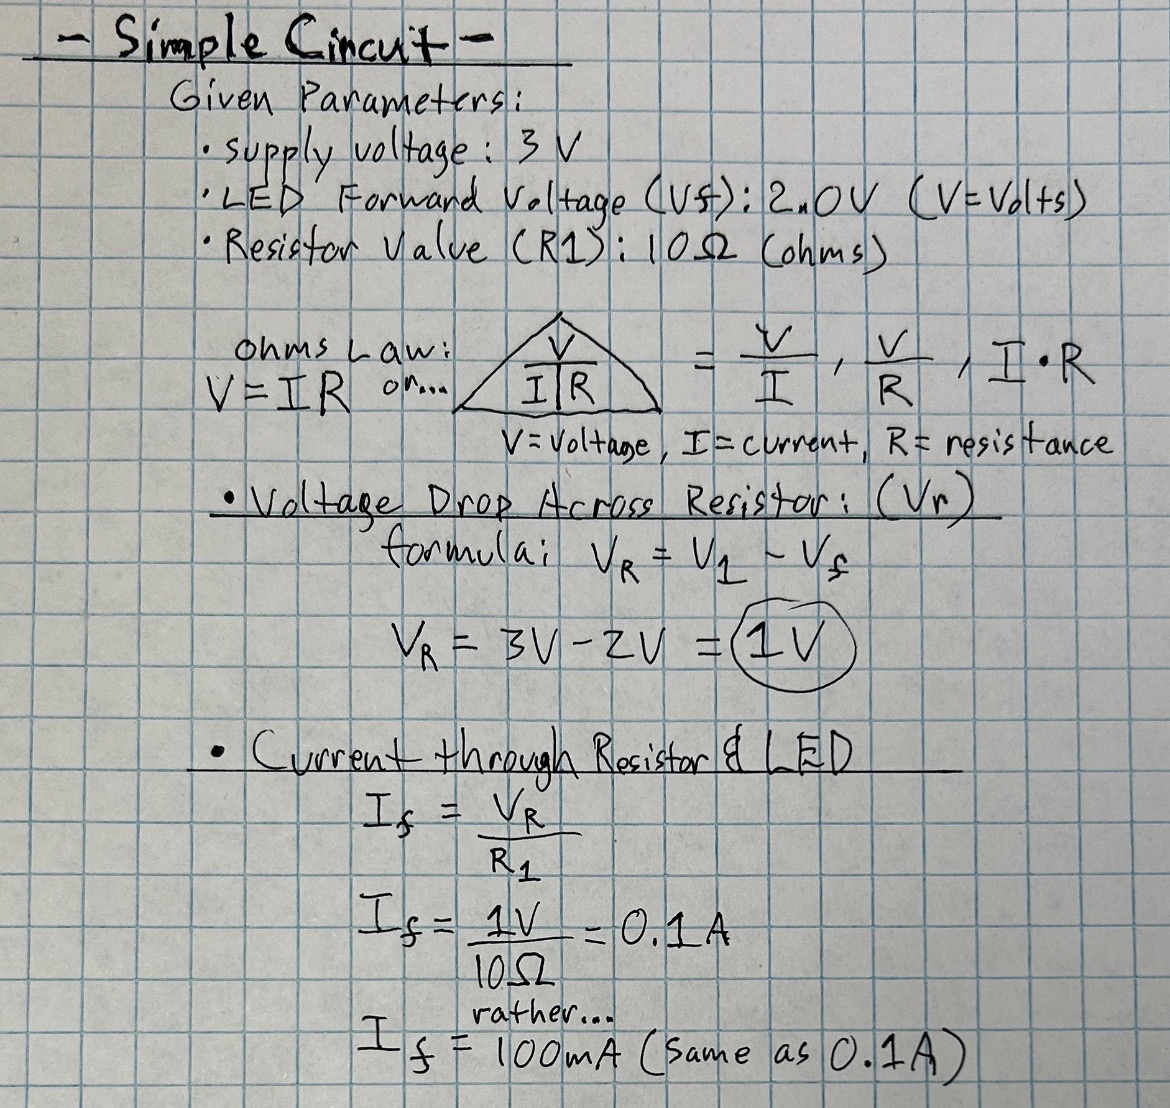 - Simple Circuit -
Given Parameters:
• supply voltage: 3 V
• LED Forward Voltage (Vf): 2.0V (V=Volts)
• Resistor Value (R1): 10Ω (ohms)
ohms Law:
V = IR or...
V
I | R
= V/I , V/R , I • R
V = Voltage, I = current, R = resistance
• Voltage Drop Across Resistor: (Vr)
formula: VR = V1 - Vf
VR = 3V - 2V = 1V
• Current through Resistor & LED
If = VR/R1
If = 1V/10Ω = 0.1A
rather...
If = 100mA (same as 0.1A)